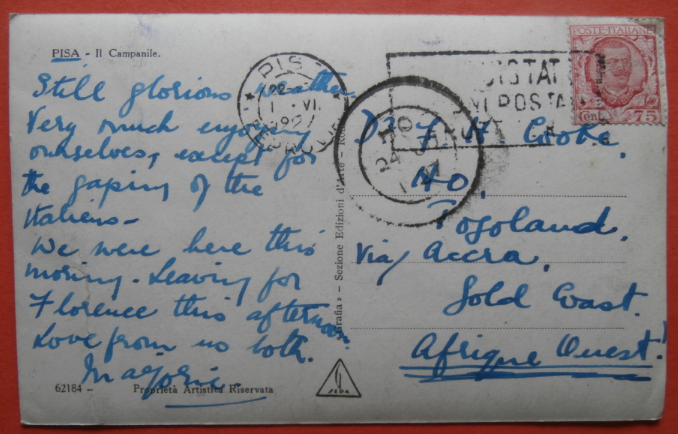 PISA - Il Campanile.
Still glorious weather.
Very much enjoying
ourselves, except for
the gaping of the
Italiens -
We were here this
morning. Leaving for
Florence this afternoon.
Love from us both.
Marjorie.
62184 - Proprietà Artistica Riservata
grafia» - Sezione Edizioni d'Arte -
POSTE ITALIANE
Cent. 75
PISA
VI
HO
24
POSTA
Dr F. Cooke.
HO.
Togoland.
Via/ Accra.
Gold Coast.
Afrique Ouest!